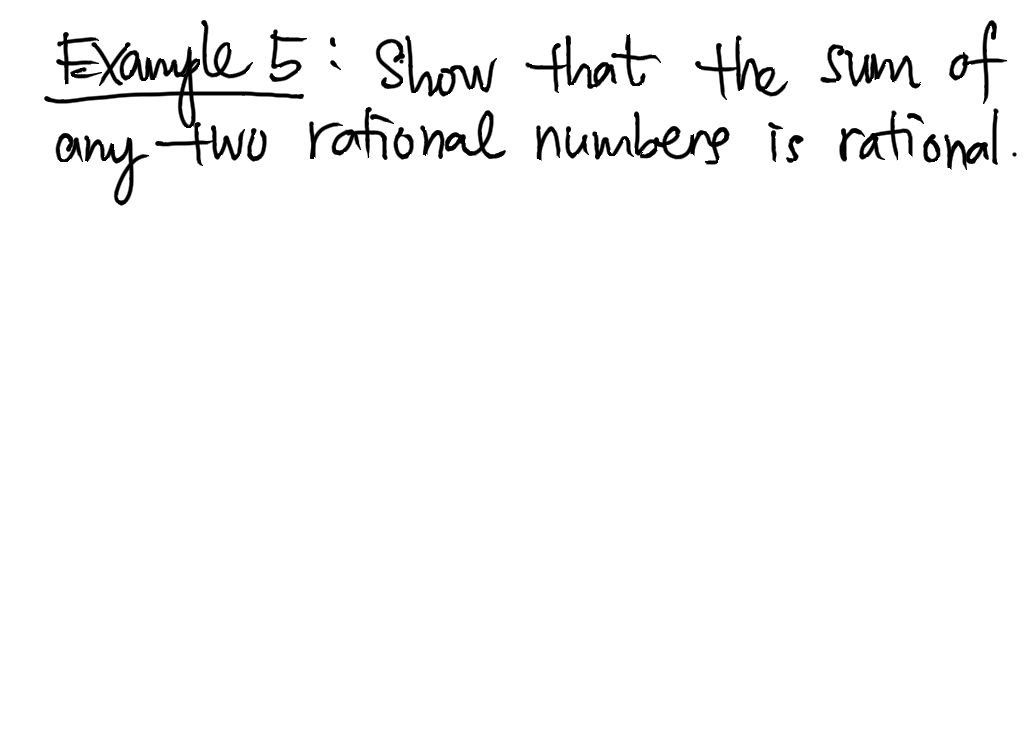 Example 5: Show that the sum of
any two rational numbers is rational.